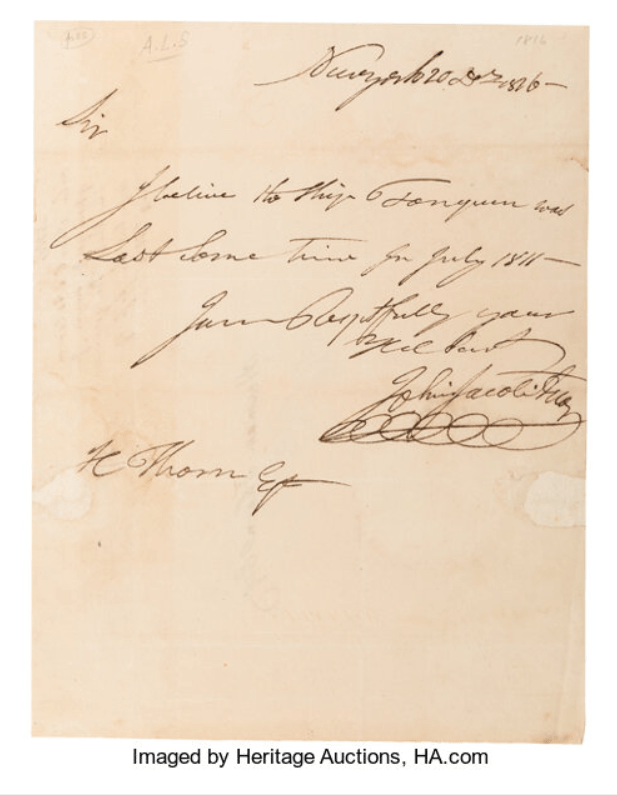 A.L.S
1816
Newyork 20 Dec 1816 —
Sir
I belive the Ship Tonquin was
Lost Some time In July 1811 —
I am Respetfully your
John Jacob Astor
H Thorn Esq
Imaged by Heritage Auctions, HA.com